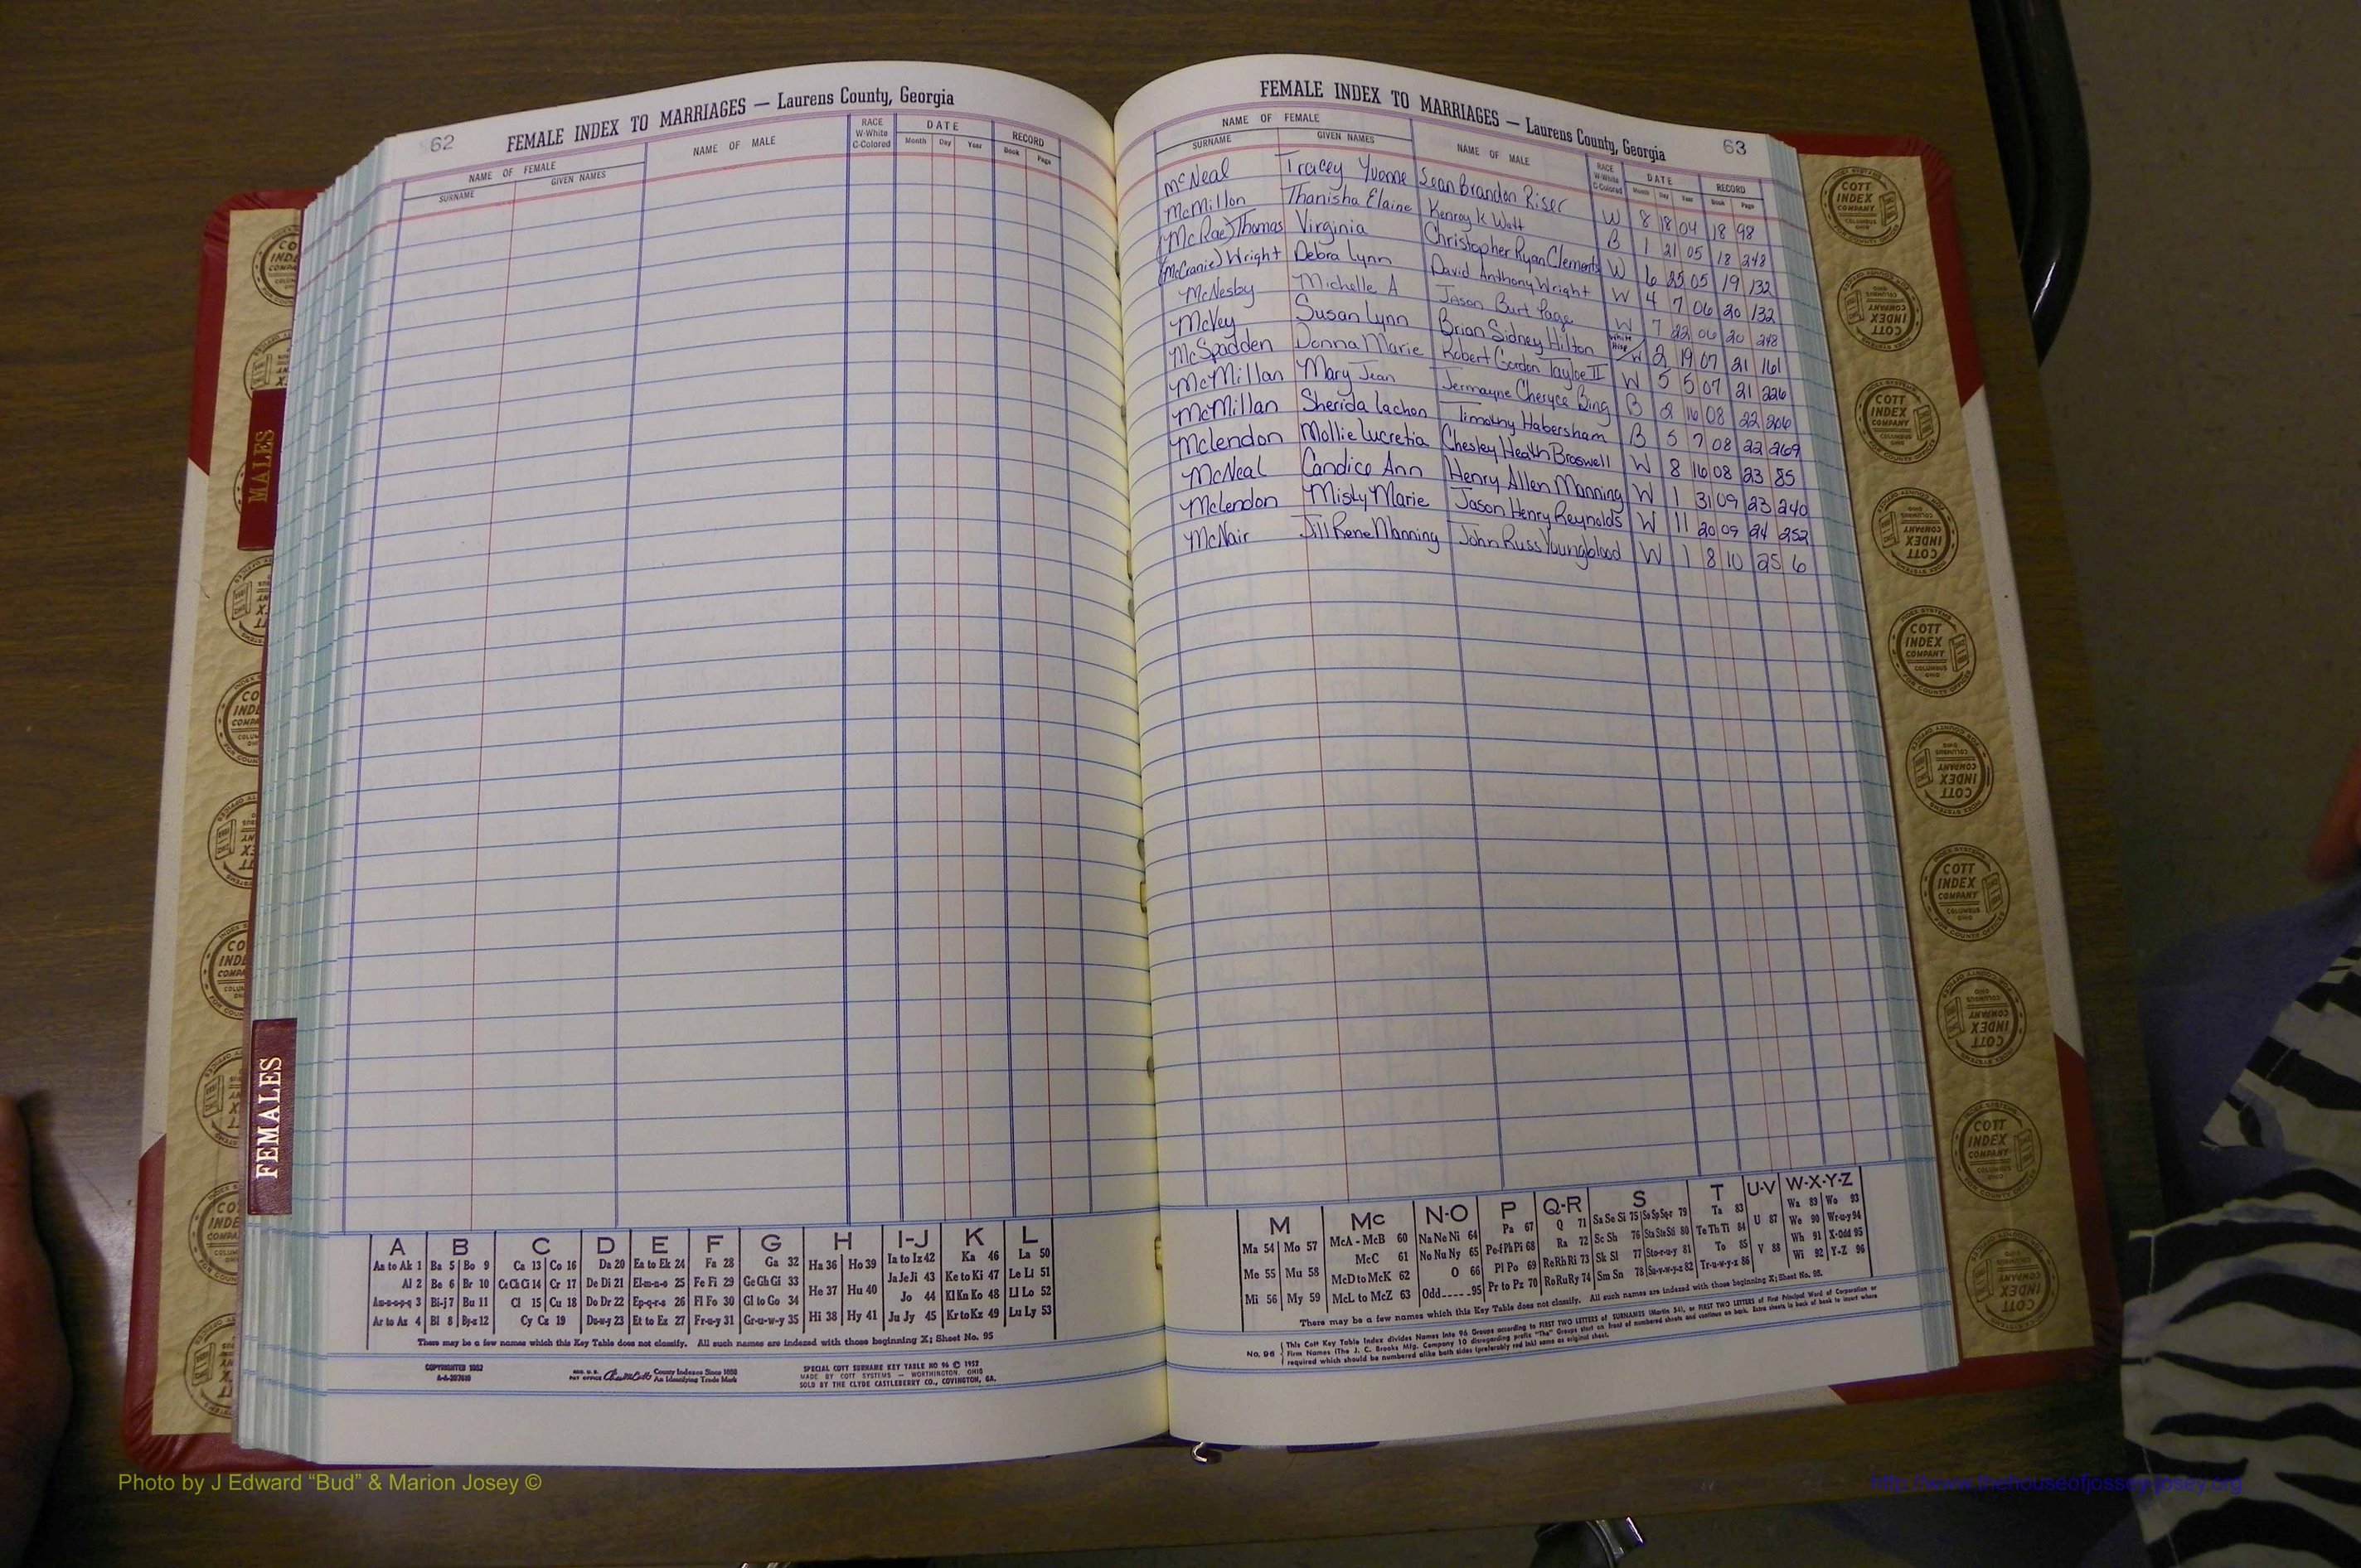 62
FEMALE INDEX TO MARRIAGES — Laurens County, Georgia
NAME OF FEMALE
SURNAME GIVEN NAMES
NAME OF MALE
RACE
W-White
C-Colored
DATE
Month Day Year
RECORD
Book Page
FEMALE INDEX TO MARRIAGES — Laurens County, Georgia
63
NAME OF FEMALE
SURNAME GIVEN NAMES
NAME OF MALE
RACE
W-White
C-Colored
DATE
Month Day Year
RECORD
Book Page
McNeal Tracey Yvonne Sean Brandon Riser W 8 18 04 18 98
McMillon Thanisha Elaine Kenroy K Watt B 1 21 05 18 248
(McRae) Thomas Virginia Christopher Ryan Clements W 6 25 05 19 132
(McCranie) Wright Debra Lynn David Anthony Wright W 4 7 06 20 132
McNesby Michelle A Jason Burt Page W 7 22 06 20 248
McVey Susan Lynn Brian Sidney Hilton White Hisp/W 2 19 07 21 161
McSpadden Donna Marie Robert Gordon Tayloe II W 5 5 07 21 226
McMillan Mary Jean Jermayne Cheryce Bing B 2 16 08 22 206
McMillan Sherida Lachon Timothy Habersham B 5 7 08 22 269
McLendon Mollie Lucretia Chesley Heath Braswell W 8 16 08 23 85
McNeal Candice Ann Henry Allen Manning W 1 31 09 23 240
McLendon Misty Marie Jason Henry Reynolds W 11 20 09 24 252
McNair Jill Rene Manning John Russ Youngblood W 1 8 10 25 6
MALES
FEMALES
A B C D E F G H I-J K L
Aa to Ak 1 Ba 5 Bo 9 Ca 13 Co 16 Da 20 Ea to Ek 24 Fa 28 Ga 32 Ha 36 Ho 39 Ia to Iz 42 Ka 46 La 50
Al 2 Be 6 Br 10 Ce Ch Ci 14 Cr 17 De Di 21 El-m-n-o 25 Fe Fi 29 Ge Gh Gi 33 He 37 Hu 40 Ja Je Ji 43 Ke to Ki 47 Le Li 51
Am-n-o-p-q 3 Bi-j 7 Bu 11 Cl 15 Cu 18 Do Dr 22 Ep-q-r-s 26 Fl Fo 30 Gl to Go 34 Jo 44 Kl Kn Ko 48 Ll Lo 52
Ar to Az 4 Bl 8 By-z 12 Cy Cz 19 Du-w-y 23 Et to Ez 27 Fr-u-y 31 Gr-u-w-y 35 Hi 38 Hy 41 Ju Jy 45 Kr to Kz 49 Lu Ly 53
There may be a few names which this Key Table does not classify. All such names are indexed with those beginning X; Sheet No. 95
County Indexes Since 1888
An Identifying Trade Mark
SPECIAL COTT SURNAME KEY TABLE NO 96 © 1957
MADE BY COTT SYSTEMS — WORTHINGTON, OHIO
SOLD BY THE CLYDE CASTLEBERRY CO., COVINGTON, GA.
M Mc N-O P Q-R S T U-V W-X-Y-Z
Ma 54 Mo 57 McA - McB 60 Na Ne Ni 64 Pa 67 Q 71 Sa Se Si 75 So Sp Sq-r 79 Ta 83 U 87 Wa 89 Wo 93
McC 61 No Nu Ny 65 Pe-f Ph Pi 68 Ra 72 Sc Sh 76 Sta Ste Sti 80 Te Th Ti 84 We 90 Wr-u-y 94
Me 55 Mu 58 McD to McK 62 O 66 Pl Po 69 Re Rh Ri 73 Sk Sl 77 Sto-r-u-y 81 To 85 V 88 Wh 91 X-Odd 95
Mi 56 My 59 McL to McZ 63 Odd-----95 Pr to Pz 70 Ro Ru Ry 74 Sm Sn 78 Su-v-w-y-z 82 Tr-u-w-y-z 86 Wi 92 Y-Z 96
There may be a few names which this Key Table does not classify. All such names are indexed with those beginning X; Sheet No. 95.
No. 96 This Cott Key Table Index divides Names into 96 Groups according to FIRST TWO LETTERS of SURNAMES (Martin 54), or FIRST TWO LETTERS of First Principal Word of Corporation or
Firm Names (The J. C. Brooks Mfg. Company 10 disregarding prefix "The" Groups start on front of numbered sheets and continues on back. Extra sheets in back of book to insert where
required which should be numbered alike both sides (preferably red ink) same as original sheet.
COTT
INDEX
COMPANY
COLUMBUS
OHIO
INDEX SYSTEMS
FOR COUNTY OFFICES
Photo by J Edward “Bud” & Marion Josey ©
http://www.thehouseofjossey-josey.org